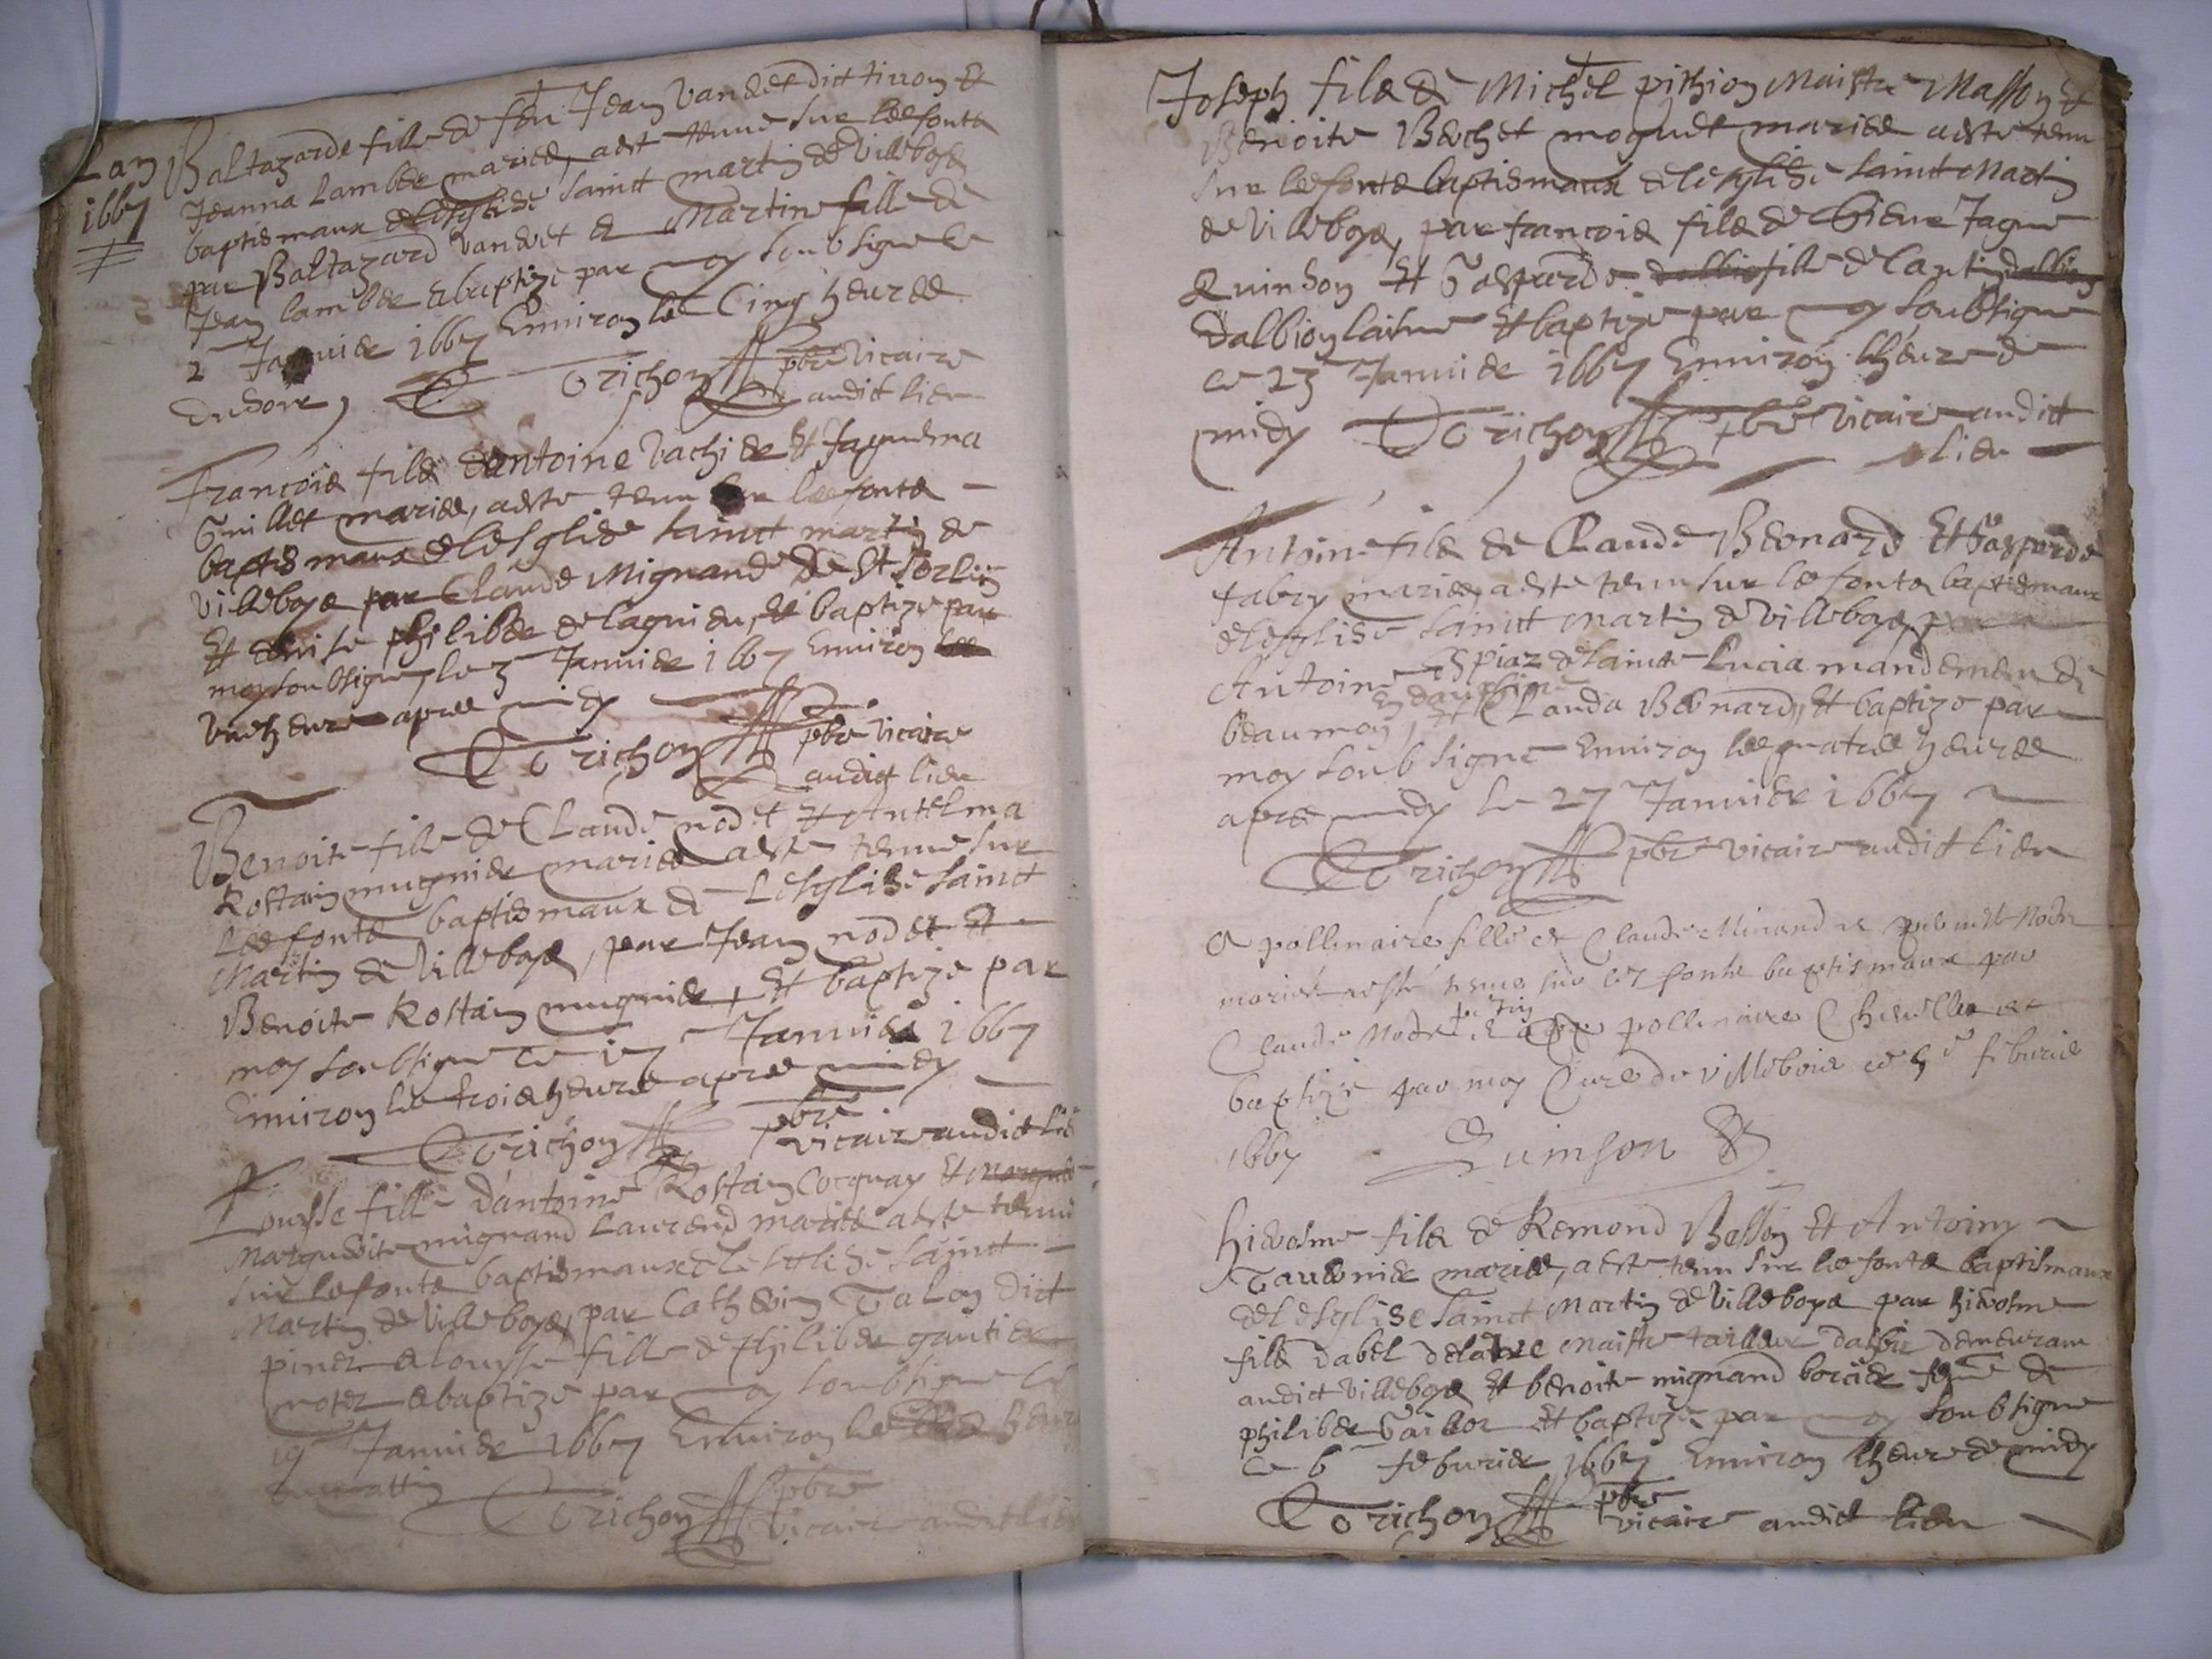 Lan
1667
Baltazarde fille de feu Jean Vandet dict tivron Et
Jeanna Lamber mariez, aeste tenue sur lesfonts
baptismaux delesglize sainct martin de Villeboys
par Baltazard Vandet & Martine fille de
Jean lamber & baptize par moy soubsigne ce
2 Janvier 1667 Environ les Cinq heures
dusoir,
Trichon pbre vicaire
audict lieu
François filz dAntoine Vachier Et Jaquema
Guillet mariez, aeste tenu sur lesfonts
baptismaux delesglise sainct martin de
Villeboys par Claude Mignand de St Sorlin
Et denise philiber de lagnieu, Et baptize par
moy soubsigne, le 3 Janvier 1667 Environ
une heure apres midy
Trichon pbre vicaire
audict lieu
Benoite fille de Claude nodet Et Antelma
Rostain mugnier mariez aeste tenue sur
lesfonts baptismaux de Lesglise sainct
Martin de Villeboys, par Jean nodet Et
Benoite Rostain mugnier, Et baptize par
moy soubsigne ce 17 Janvier 1667
Environ les trois heures apres midy
Trichon pbre
vicaire audict lieu
Louysse fille dantoine Rostain Cocquay Et
Marguerite mignand Laurend mariez aeste tenue
sur lesfonts baptismaux delesglize sainct
Martin de Villeboys, par Catherin Talon dict
pinet & louysse fille de philiber gautier
& baptize par moy soubsigne ce
19 Janvier 1667 Environ les heures
du mattin
Trichon pbre
vicaire audict lieu
Joseph filz de Michel pithion Maistre Masson Et
Benoite Bechet moguet mariez aeste tenu
sur lesfonts baptismaux delesglize sainct Martin
de Villeboys, par françois filz de Jaque
Quinson Et Gasparde fille de
dalbion laisne Et baptize par moy soubsigne
ce 23 Janvier 1667 Environ lheure de
midy Trichon pbre vicaire audict
lieu
Antoine filz de Claude Bernard Et Gasparde
fabry mariez, aeste tenu sur lesfonts baptismaux
delesglise sainct Martin de Villeboys, par
Antoine Espiaz de saincte Lucia mandement de
en dauphine
beaumon, Et Clauda Bernard, Et baptize par
moy soubsigne Environ les quatre heures
apres midy le 27 Janvier 1667
Trichon pbre vicaire audict lieu
Apollinaire fille de Claude Minand
mariés a esté tenue sur les fonts baptismaux par
Claude pollinaire Chevillier et
baptizé par moy Curé de villebois ce 5e feburier
1667 Quinson
hierosme filz de Remond Besson Et Antoine
Tavernier mariez, aeste tenu sur lesfonts baptismaux
delesglise sainct Martin de Villeboys par hierosme
filz dabel delatre maistre tailleur dabis demeurant
audict Villeboys Et benoite mignand borcier feme de
philiber Vaillot Et baptize par moy soubsigne
ce 6 feburier 1667 Environ lheure de midy
Trichon pbre
vicaire audict lieu